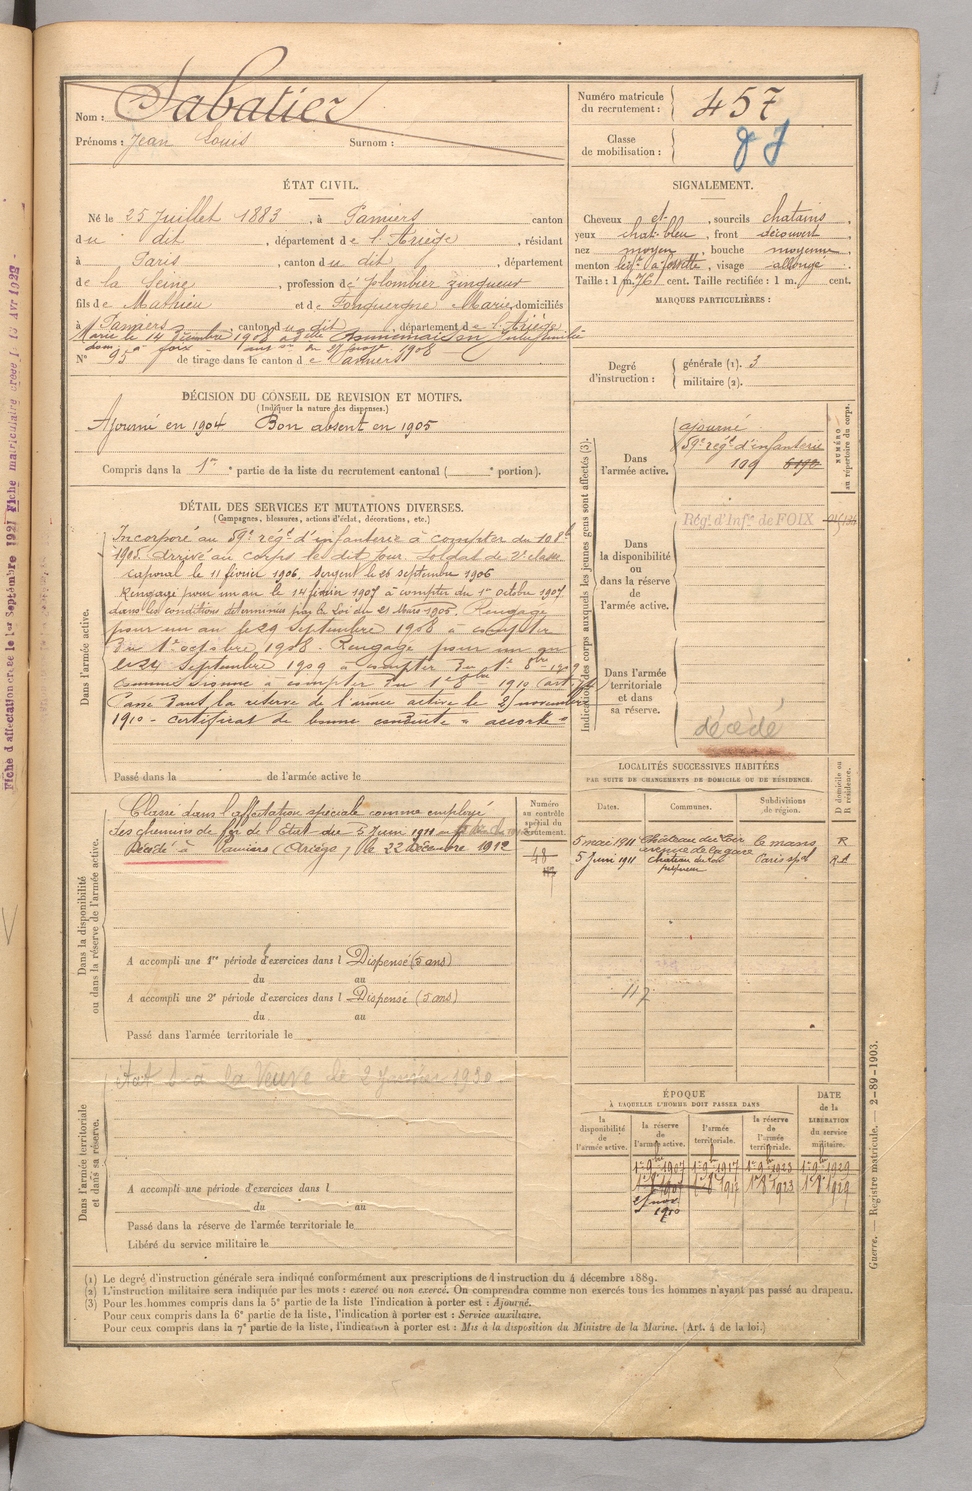 Nom : Sabatier
Prénoms : Jean Louis Surnom :
Numéro matricule du recrutement : 457
Classe de mobilisation :
ÉTAT CIVIL.
Né le 25 Juillet 1883, à Pamiers canton
du dit, département de l'Ariège, résidant
à Paris, canton du dit, département
de la Seine, profession de plombier zingueur
fils de Mathieu et de Fonquergne Marie domiciliés
à Pamiers, canton du dit, département de l'Ariège
Marié le 14 Décembre 1908 à delle
N° 95 de tirage dans le canton de Pamiers
SIGNALEMENT.
Cheveux et, sourcils chatains,
yeux chat. bleu, front découvert
nez moyen, bouche moyenne,
menton à fossette, visage allongé.
Taille : 1 m. 76 cent. Taille rectifiée : 1 m. cent.
MARQUES PARTICULIÈRES :
Degré d'instruction : générale (1). 3
militaire (2).
DÉCISION DU CONSEIL DE REVISION ET MOTIFS.
(Indiquer la nature des dispenses.)
Ajourné en 1904 Bon absent en 1905
Compris dans la 1re partie de la liste du recrutement cantonal ( portion).
DÉTAIL DES SERVICES ET MUTATIONS DIVERSES.
(Campagnes, blessures, actions d'éclat, décorations, etc.)
Dans l'armée active.
Incorporé au 59e rég.t d'infanterie à compter du 10 8bre
1905. Arrivé au corps le dit jour. Soldat de 2e classe
caporal le 11 février 1906. Sergent le 26 septembre 1906
Rengagé pour un an le 14 février 1907 à compter du 1er octobre 1907
dans les conditions déterminées par la Loi du 21 Mars 1905. Rengagé
pour un an le 29 septembre 1908 à compter
du 1er octobre 1908. Rengagé pour un an
le 24 septembre 1909 à compter du 1er 8bre 1909
commissionné à compter du 1er 8bre 1910
Passé dans la réserve de l'armée active le 2 novembre
1910 - certificat de bonne conduite « accordé »
Passé dans la de l'armée active le
Indication des corps auxquels les jeunes gens sont affectés (3).
NUMÉRO au répertoire du corps.
Dans l'armée active.
ajourné
59e rég.t d'infanterie
109 6190
Dans la disponibilité ou dans la réserve de l'armée active.
Rég.t d'Inf.ie de FOIX
Dans l'armée territoriale et dans sa réserve.
décédé
Dans la disponibilité ou dans la réserve de l'armée active.
Numéro au contrôle spécial du recrutement.
Classé dans l'affectation spéciale comme employé
des chemins de fer de l'Etat du 5 Juin 1911
Décédé à Pamiers (Ariège) le 22 Décembre 1912
48
A accompli une 1re période d'exercices dans l Dispensé (5 ans)
du au
A accompli une 2e période d'exercices dans l Dispensé (5 ans)
du au
Passé dans l'armée territoriale le
LOCALITÉS SUCCESSIVES HABITÉES
PAR SUITE DE CHANGEMENTS DE DOMICILE OU DE RÉSIDENCE.
Dates. Communes. Subdivisions de région. D domicile ou R résidence.
5 mai 1911 Château du Loir Le mans R
avenue de la gare
5 Juin 1911 Chateau du Loir Paris spal
117
Dans l'armée territoriale et dans sa réserve.
à la Veuve le 2 Janvier 1930
A accompli une période d'exercices dans l
du au
Passé dans la réserve de l'armée territoriale le
Libéré du service militaire le
ÉPOQUE
À LAQUELLE L'HOMME DOIT PASSER DANS
la disponibilité de l'armée active.
la réserve de l'armée active.
l'armée territoriale.
la réserve de l'armée territoriale.
DATE de la LIBÉRATION du service militaire.
1er 9bre 1907 1er 9bre 1917 1er 9bre 1923 1er 9bre 1929
2 nov. 1910
(1) Le degré d'instruction générale sera indiqué conformément aux prescriptions de l'instruction du 4 décembre 1889.
(2) L'instruction militaire sera indiquée par les mots : exercé ou non exercé. On comprendra comme non exercés tous les hommes n'ayant pas passé au drapeau.
(3) Pour les hommes compris dans la 5e partie de la liste l'indication à porter est : Ajourné.
Pour ceux compris dans la 6e partie de la liste, l'indication à porter est : Service auxiliaire.
Pour ceux compris dans la 7e partie de la liste, l'indication à porter est : Mis à la disposition du Ministre de la Marine. (Art. 4 de la loi.)
Guerre. — Registre matricule. — 2-89-1903.
Fiche d'affectation créée le 1er Septembre 1927 Fiche matriculaire créée le